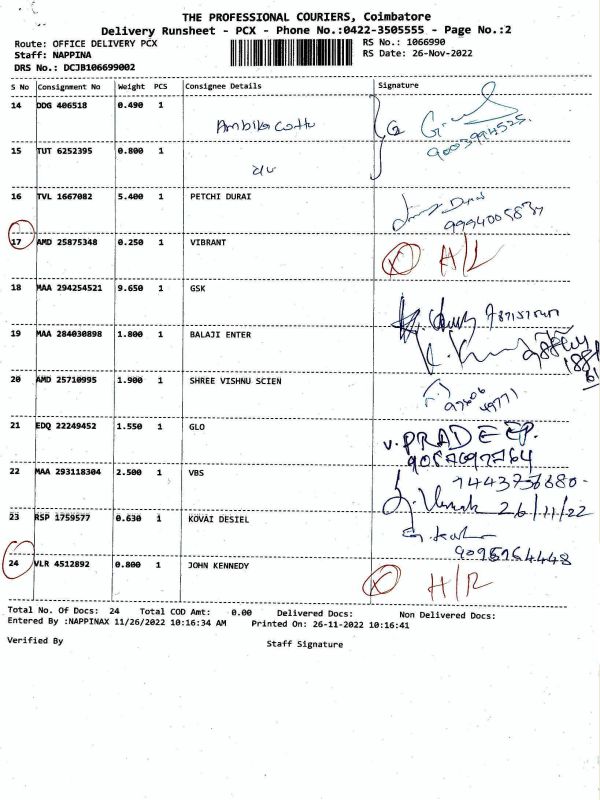 THE PROFESSIONAL COURIERS, Coimbatore
Delivery Runsheet - PCX - Phone No.:0422-3505555 - Page No.:2
Route: OFFICE DELIVERY PCX RS No.: 1066990
Staff: NAPPINA RS Date: 26-Nov-2022
DRS No.: DCJB106699002
S No Consignment No Weight PCS Consignee Details Signature
14 DDG 406518 0.490 1
9003994525
15 TUT 6252395 0.800 1
16 TVL 1667082 5.400 1 PETCHI DURAI
17 AMD 25875348 0.250 1 VIBRANT X H/L
18 MAA 294254521 9.650 1 GSK
19 MAA 284030898 1.800 1 BALAJI ENTER
20 AMD 25710995 1.900 1 SHREE VISHNU SCIEN
21 EDQ 22249452 1.550 1 GLO V. PRADEEP.
22 MAA 293118304 2.500 1 VBS
26/11/22
23 RSP 1759577 0.630 1 KOVAI DESIEL
24 VLR 4512892 0.800 1 JOHN KENNEDY X H/R
Total No. Of Docs: 24 Total COD Amt: 0.00 Delivered Docs: Non Delivered Docs:
Entered By :NAPPINAX 11/26/2022 10:16:34 AM Printed On: 26-11-2022 10:16:41
Verified By Staff Signature